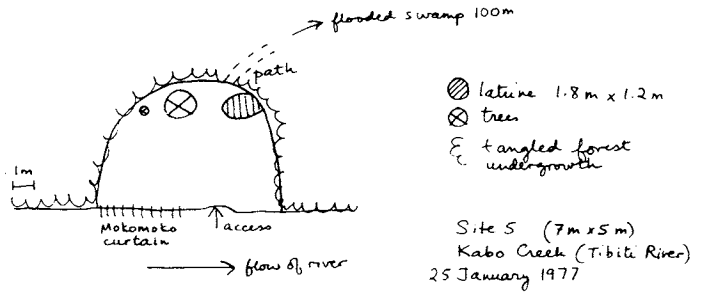 flooded swamp 100m
path
latrine 1.8 m x 1.2 m
trees
tangled forest
undergrowth
1m
Mokomoko
curtain
access
flow of river
Site 5 (7m x 5 m)
Kabo Creek (Tibiti River)
25 January 1977